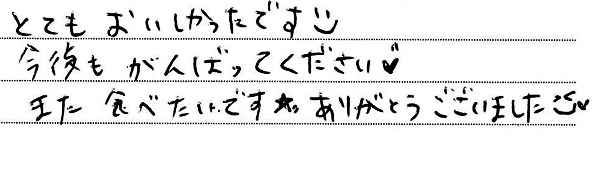 とても おいしかったです☺
今後も がんばってください♥
また 食べたいです★ ありがとうございました☺♥